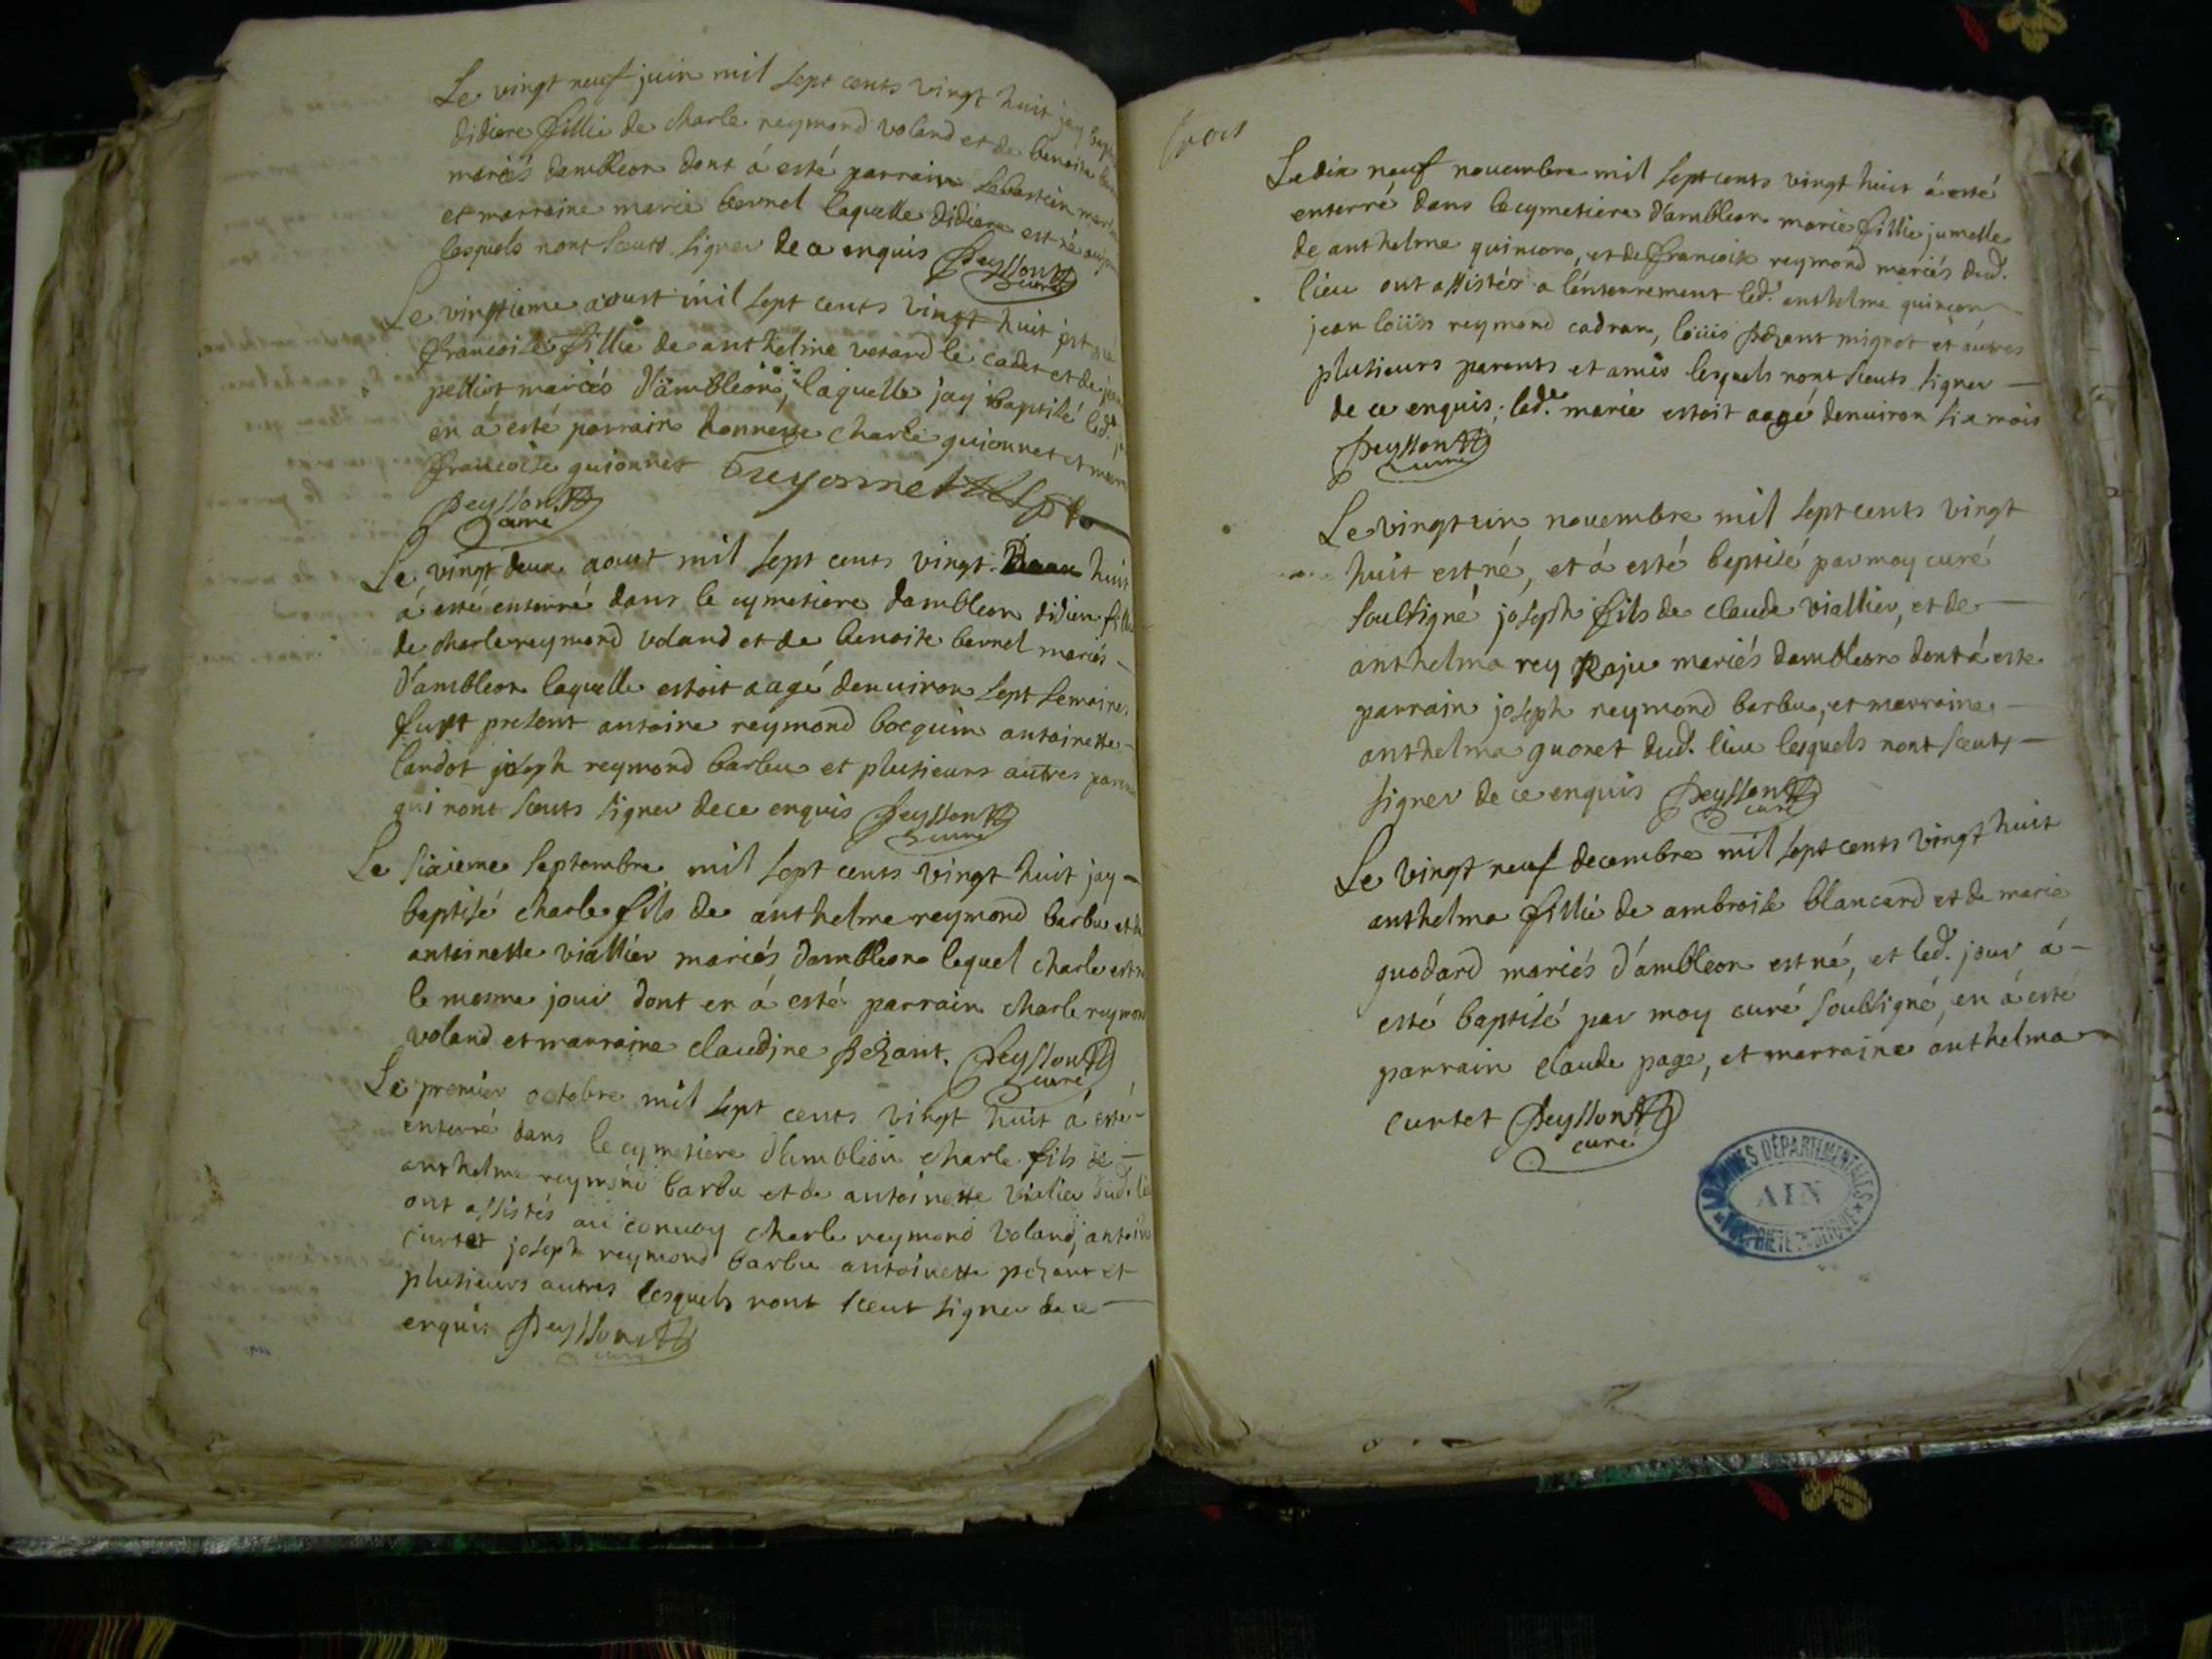 Le vingt neuf juin mil sept cents vingt huit jay
didiere fillie de charle reymond voland et de benoite
mariés dambleon dont á esté parrain sebastien
et marraine marie bernel laquelle didiere est né
lesquels nont sceuts signer de ce enquis Peysson
curé
Le vingtieme aoust mil sept cents vingt huit est né
francoise fillie de anthelme verard le cadet et de
pelliot mariés d'ambleon, laquelle jay baptisé led.
en á esté parrain honneste charle guionnet et
francoise guionnet Guyonnet
Peysson
curé
Le vingt deux aoust mil sept cents vingt huit
á esté enterré dans le cymetiere dambleon didiere fillie
de charle reymond voland et de benoite bernel mariés
d'ambleon laquelle estoit aagé denuiron sept semaines
furt present antoine reymond bocquin antoinette
landot joseph reymond barbu et plusieurs autres
qui nont sceuts signer de ce enquis Peysson
curé
Le sixieme septembre mil sept cents vingt huit jay
baptisé charle fils de anthelme reymond barbu et de
antoinette viallier mariés dambleon lequel charle est né
le mesme jour dont en á esté parrain charle reymond
voland et marraine claudine pezant. Peysson
curé
Le premier octobre mil sept cents vingt huit á esté
enterré dans le cymetiere d'ambleon charle fils de
anthelme reymond barbu et de antoinette vialier dud. lieu
ont assistés au conuoy charle reymond voland, antoine
curtet joseph reymond barbu antoinette pezant et
plusieurs autres lesquels nont sceut signer de ce
enquis Peysson
curé
trois
Le dix neuf nouembre mil sept cents vingt huit á esté
enterré dans le cymetiere d'ambleon marie fillie jumelle
de anthelme quincon, et de francoise reymond mariés dud.
lieu ont assistés a l'enterrement led. anthelme quincon
jean loüis reymond cadran, loüis pezant mignot et autres
plusieurs parents et amis lesquels nont sceuts signer
de ce enquis; lad.e marie estoit aagé denuiron six mois
Peysson
curé
Le vingt un nouembre mil sept cents vingt
huit est né, et á esté baptisé par moy curé
soubsigné joseph fils de claude viallier, et de
anthelma rey Raju mariés dambleon dont á esté
parrain joseph reymond barbu, et marraine
anthelma guonet dud. lieu lesquels nont sceuts
signer de ce enquis Peysson
curé
Le vingt neuf decembre mil sept cents vingt huit
anthelma fillie de ambroise blancard et de marie
guodard mariés d'ambleon est né, et led. jour á
esté baptisé par moy curé soubsigné, en á esté
parrain claude page, et marraine anthelma
curtet Peysson
curé
ARCHIVES DÉPARTEMENTALES
AIN
PROPRIÉTÉ PUBLIQUE